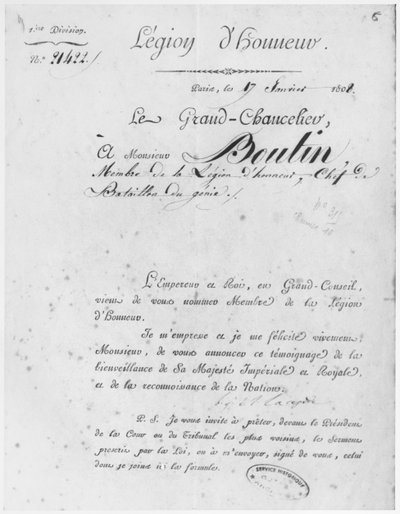 6
1ère Division.
N.° 21422.
Légion d'Honneur.
Paris, les 17 Janvier 1808.
Le Grand-Chancelier,
A Monsieur Boutin,
Membre de la Légion d'honneur, Chef de
Bataillon du génie.
L'Empereur et Roi, en Grand-Conseil,
vient de vous nommer Membre de la Légion
d'Honneur.
Je m'empresse et je me félicite vivement,
Monsieur, de vous annoncer ce témoignage de la
bienveillance de Sa Majesté Impériale et Royale,
et de la reconnoissance de la Nation.
P. S. Je vous invite à prêter, devant le Président
de la Cour ou du Tribunal les plus voisins, le serment
prescrit par la Loi, ou à m'envoyer, signé de vous, celui
dont je joins ici la formule.
SERVICE HISTORIQUE